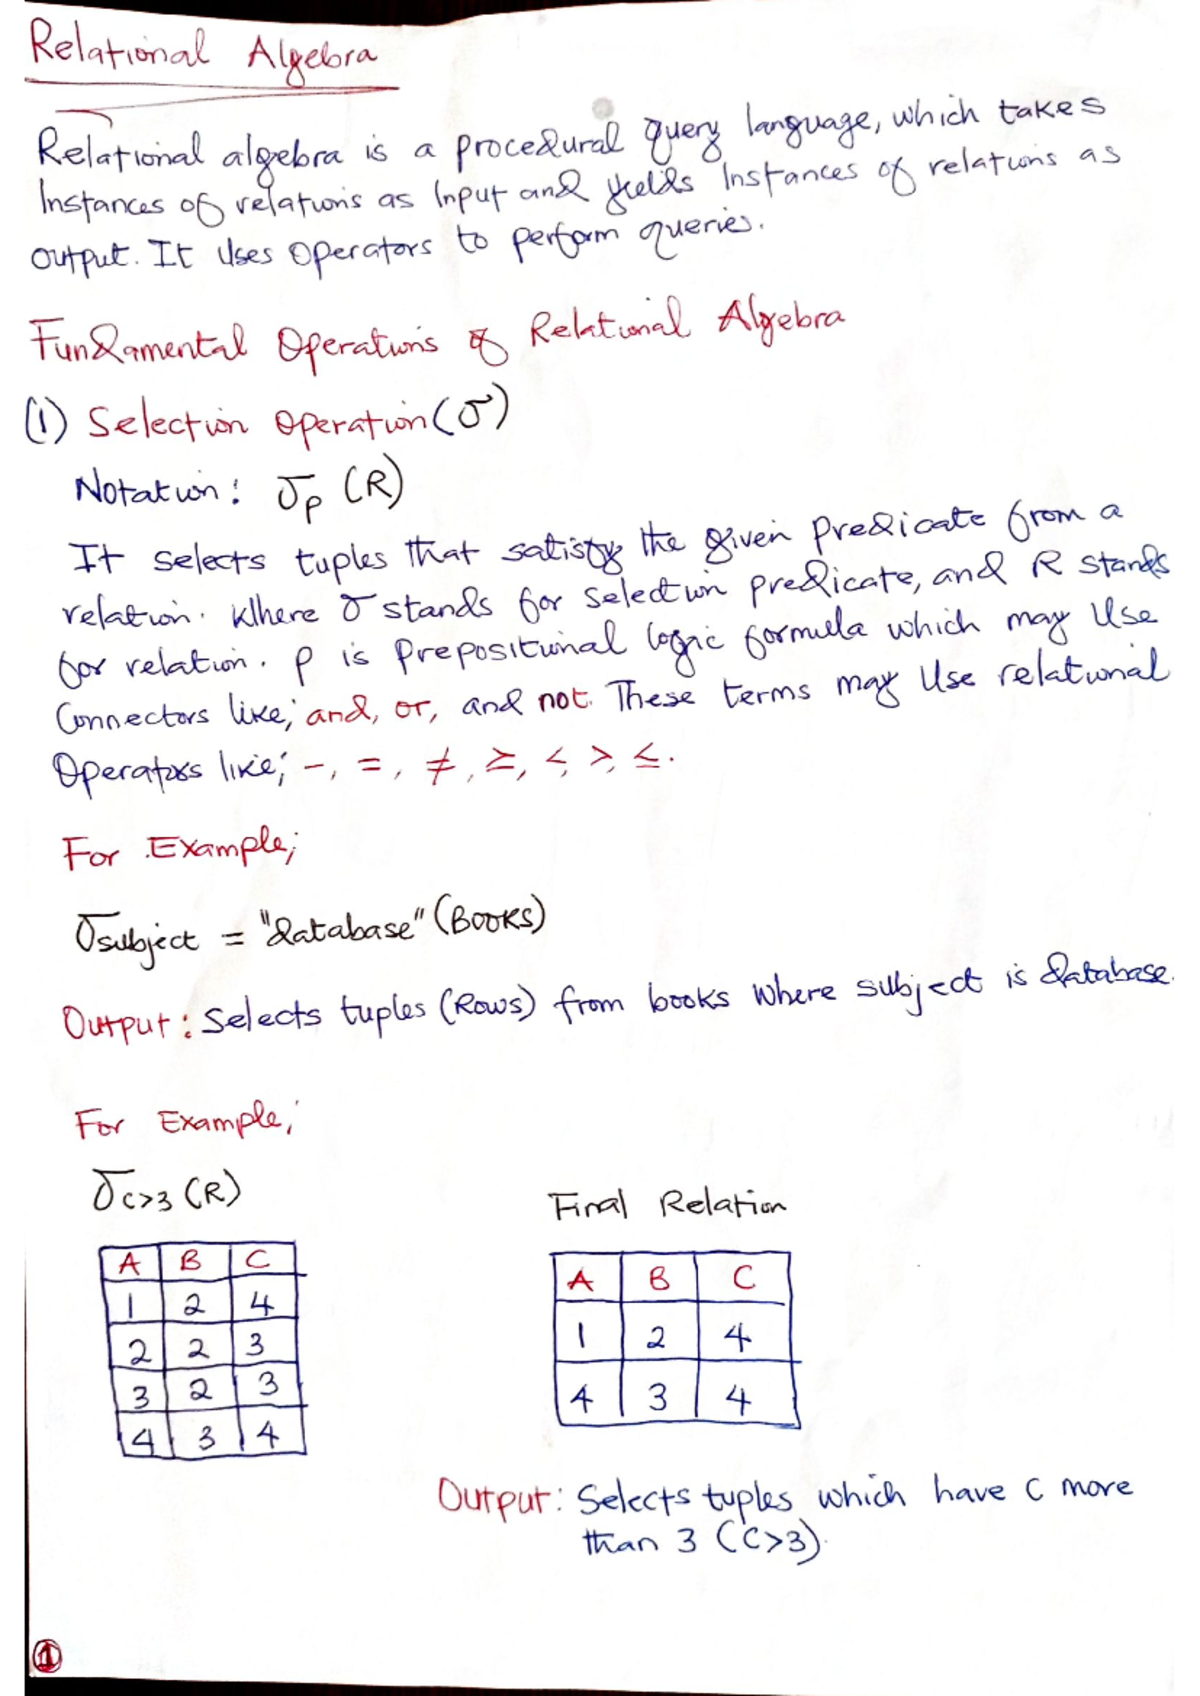 Relational Algebra
Relational algebra is a procedural query language, which takes
Instances of relations as Input and yields Instances of relations as
output. It Uses Operators to perform queries.
Fundamental Operations of Relational Algebra
(1) Selection operation (σ)
Notation: σp (R)
It selects tuples that satisfy the given predicate from a
relation. Where σ stands for selection predicate, and R stands
for relation. P is prepositional logic formula which may Use
Connectors like; and, or, and not. These terms may Use relational
Operators like; -, =, ≠, ≥, <, >, ≤.
For Example;
σsubject = "database" (Books)
Output: Selects tuples (Rows) from books where subject is database.
For Example;
σc>3 (R)
Final Relation
A B C
1 2 4
2 2 3
3 2 3
4 3 4
A B C
1 2 4
4 3 4
Output: Selects tuples which have C more
than 3 (C>3).
1